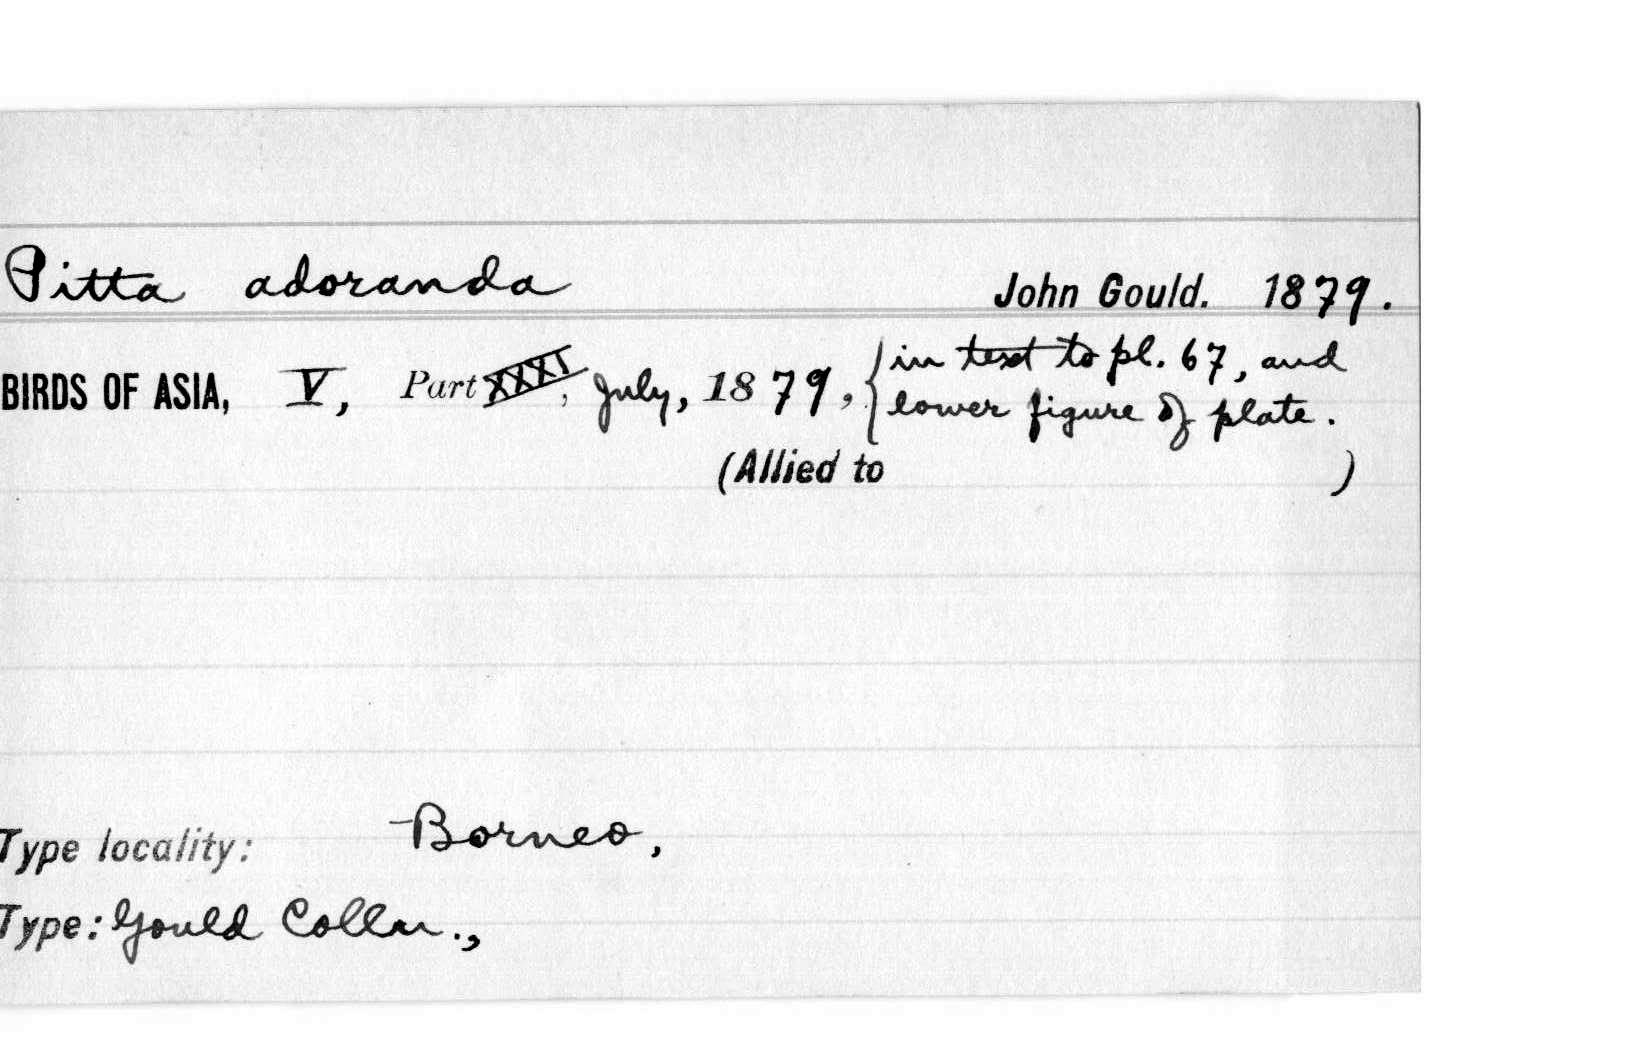 Pitta adoranda John Gould. 1879.
BIRDS OF ASIA, V, Part XXXI, July, 1879, {in text to pl. 67, and
lower figure of plate.
(Allied to )
Type locality: Borneo,
Type: Gould Colln.,